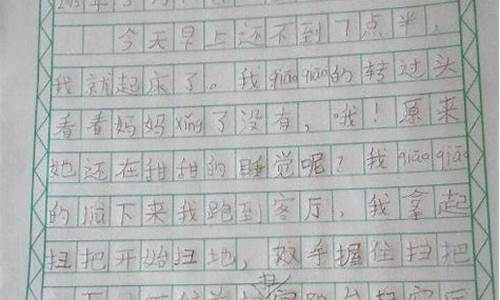 今天早上还不到7点半,
我就起床了。我qiāoqiāo的转过头
看看妈妈xǐng了没有,哦!原来
她还在甜甜的睡觉呢?我qiāoqiāo
的liū下来我跑到客厅,我拿起
扫把开始扫地,双手握住扫把